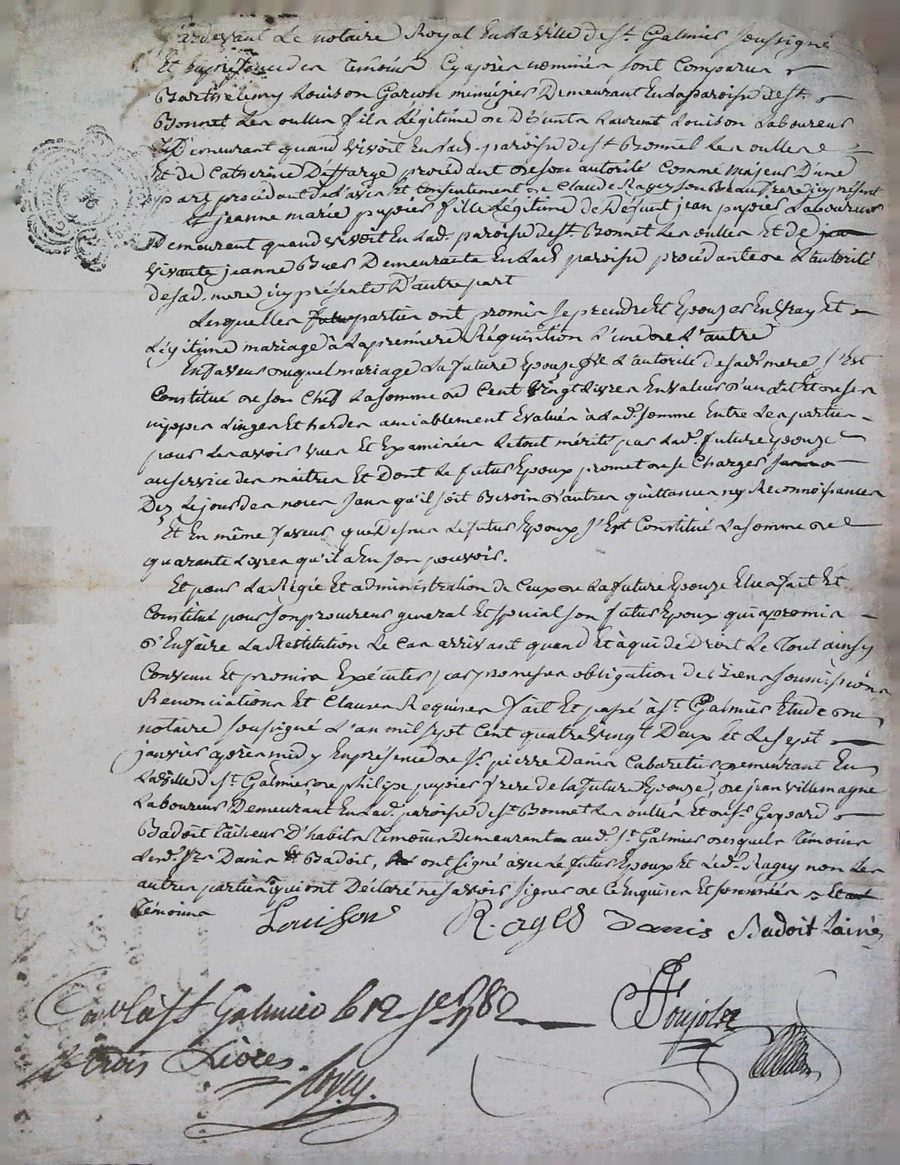 Pardevant Le notaire Royal En la ville de st. Galmier soussigné
Et en présence des Témoins Cy après nommés sont Comparus
Barthelemy Louison Garçon menuizier Demeurant En la paroisse de st.
Bonnet Les oulles fils Légitime de Déjunt Laurent Louison Laboureur
Demeurant quand vivoit En lad. paroisse de st Bonnet Les oulles
Et de Catherine Deffarge procédant de son autorité Comme majeur D'une
part procédant de l'avis et Consentement de Claude Ragey son Beau frere icy présent
Et jeanne marie pupier fille Légitime de Déjunt jean pupier Laboureur
Demeurent quand vivoit En Lad. paroisse de st Bonnet Les oulles Et de
vivante jeanne Bues Demeurante En Lad. paroisse procédante de L'autorité
de sad. mere icy présente D'autre part
Lesquelles partien ont promis se prendre Et Epouzer En vray Et
Légitime mariage à La première Réquisition L'un de L'autre
En faveur duquel mariage La future Epouze de L'autorité de sad. mere s'Est
Constitué de son Chef La somme de Cent vingt Livres En valeur d'un Lit Et de ses
nippes Linges Et hardes amiablement Evalués à Lad. somme Entre Les parties
pour Les avoir vues Et Examinées Le tout mérité par Lad. future Epouze
au service des maitres Et Dont Le futur Epoux promet de se Charger
Dez Le jour des noces sans qu'il soit Besoin d'autres quittances ny Reconnoissances
Et En même faveur que Dessus Le futur Epoux s'Est Constitué La somme de
quarante Livres qu'il a En son pouvoir.
Et pour La Régie Et administration de Ceux de La future Epouze Elle a fait Et
Constitué pour son procureur general Et spécial son futur Epoux qui a promis
d'En faire La Restitution Le cas arrivant quand Et à qui de Droit Le Tout ainsy
Convenu Et promis Exécuter par promesses obligation de Biens soumissions
Renonciations Et Clauses Requises fait Et passé à st. Galmier Etude du
notaire soussigné L'an mil sept Cent quatre vingt Deux Et Le sept
janvier après midy En présence de sr. pierre Danis Cabaretier demeurant En
La ville de st. Galmier de philipe pupier frere de la future Epouze, de jean villemagne
Laboureur Demeurant En Lad. paroisse de st. Bonnet Les oulles Et de sr. Gaspard
Badoit tailleur D'habits Témoins Demeurant aud. st. Galmier desquels Témoins
Lesd. srs Danis Et Badoit, ont signé avec Le futur Epoux Et Led. Ragey non Les
autres parties qui ont Déclaré ne savoir signer de ce Enquises Et sommées
Témoins Louison Ragey Danis Badoit Lainé
Conlé à st Galmier le 12 jer 1782
trois Livres.